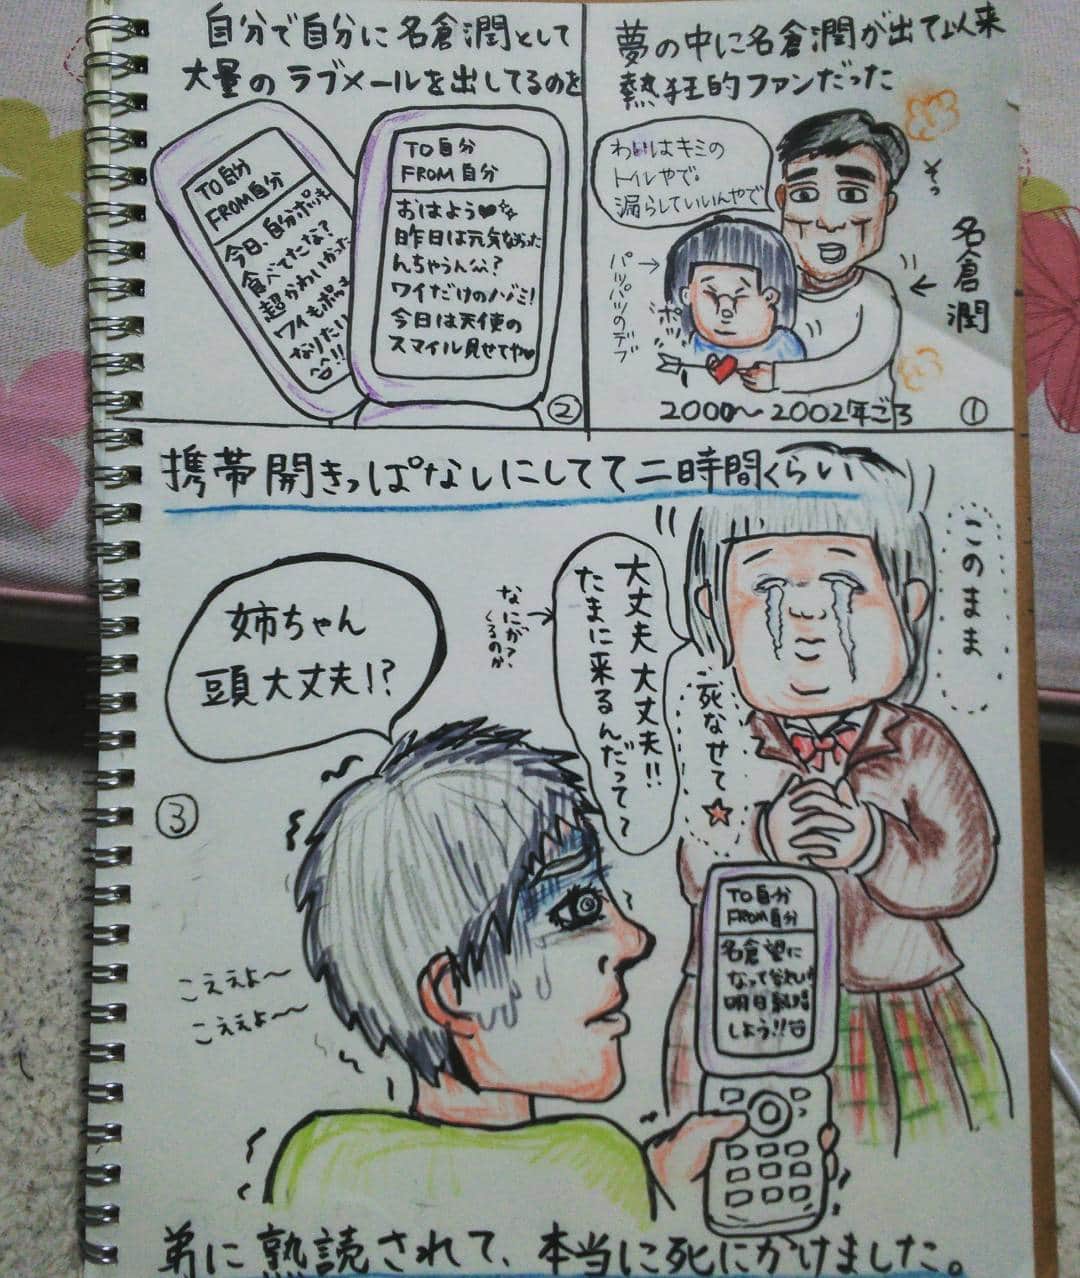 夢の中に名倉潤が出て以来
熱狂的ファンだった
わいはキミの
トイレやで。
漏らしていいんやで
そっ
名倉潤
パッパツのデブ
ポッ
2000〜2002年ごろ
①
自分で自分に名倉潤として
大量のラブメールを出してるのを
TO 自分
FROM 自分
おはよう❤
昨日は元気なかった
んちゃうん??
ワイだけのノゾミ!
今日は天使の
スマイル見せてや❤
TO 自分
FROM 自分
今日、自分ポッキー
食べてたな?
超かわいかった
ワイもポッキー
なりたい
!!
②
携帯開きっぱなしにしてて二時間くらい
このまま
死なせて☆
大丈夫大丈夫!!
たまに来るんだってて
なにが?
くるのか
姉ちゃん
頭大丈夫!?
③
TO 自分
FROM 自分
名倉望に
なって
明日
しよう!!
こええよ〜
こええよ〜
弟に熟読されて、本当に死にかけました。